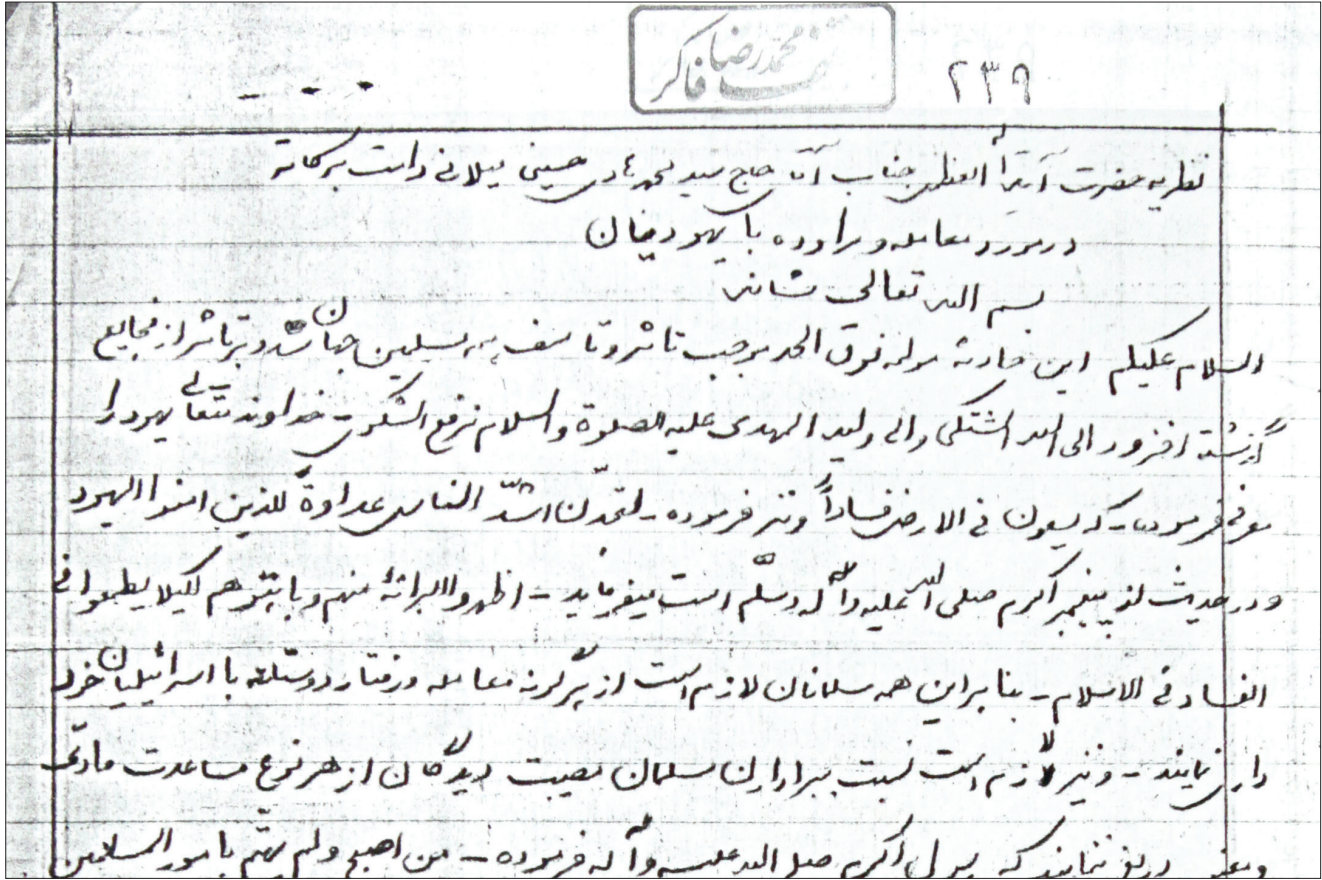 محمد رضا فاکر
۲۳۹
نظریه حضرت آیة الله العظمی جناب آقای حاج سید محمد هادی حسینی میلانی دامت برکاته
در مورد معامله و مراوده با یهودیان
بسم الله تعالی شانه
السلام علیکم این حادثه مولمه فوق الحد موجب تاثر و تاسف همه مسلمین جهان شده و بر تاثر از فجایع
گذشته افزود الی الله المشتکی والی ولیه المهدی علیه الصلوة والسلام نرفع الشکوی - خداوند متعالی یهود را
معرفی فرموده - که یسعون فی الارض فساداً و نیز فرموده - لتجدن اشدّ الناس عداوة للذین امنوا الیهود
و در حدیث از پیغمبر اکرم صلی الله علیه و آله وسلّم است میفرماید - اظهروا البرائة منهم و باهتوهم لکیلا یطمعوا فی
الفساد فی الاسلام - بنابراین همه مسلمانان لازم است از هر گونه معامله و رفتار دوستانه با اسرائیلیان خود
داری نمایند - و نیز لازم است نسبت ببرادران مسلمان مصیبت دیدگان از هر نوع مساعدت مادّی
و معنوی دریغ ننمایند که رسول اکرم صلی الله علیه وآله فرموده - من اصبح ولم یهتّم بامور المسلمین